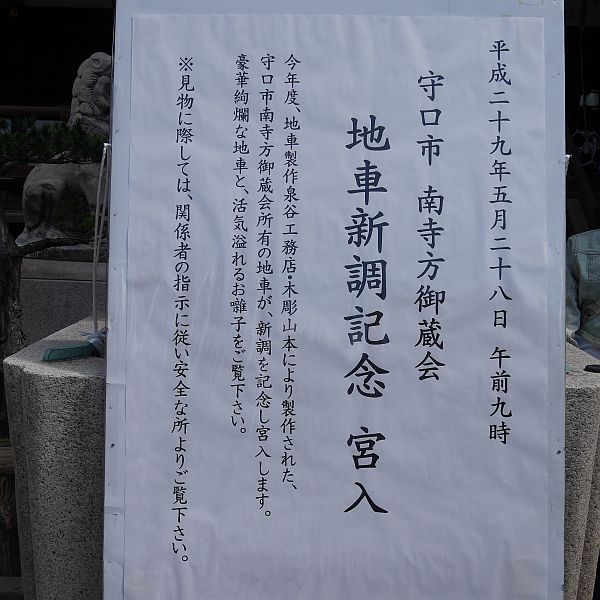 平成二十九年五月二十八日 午前九時
守口市 南寺方御蔵会
地車新調記念 宮入
今年度、地車製作泉谷工務店・木彫山本により製作された、
守口市南寺方御蔵会所有の地車が、新調を記念し宮入します。
豪華絢爛な地車と、活気溢れるお囃子をご覧下さい。
※見物に際しては、関係者の指示に従い安全な所よりご覧下さい。